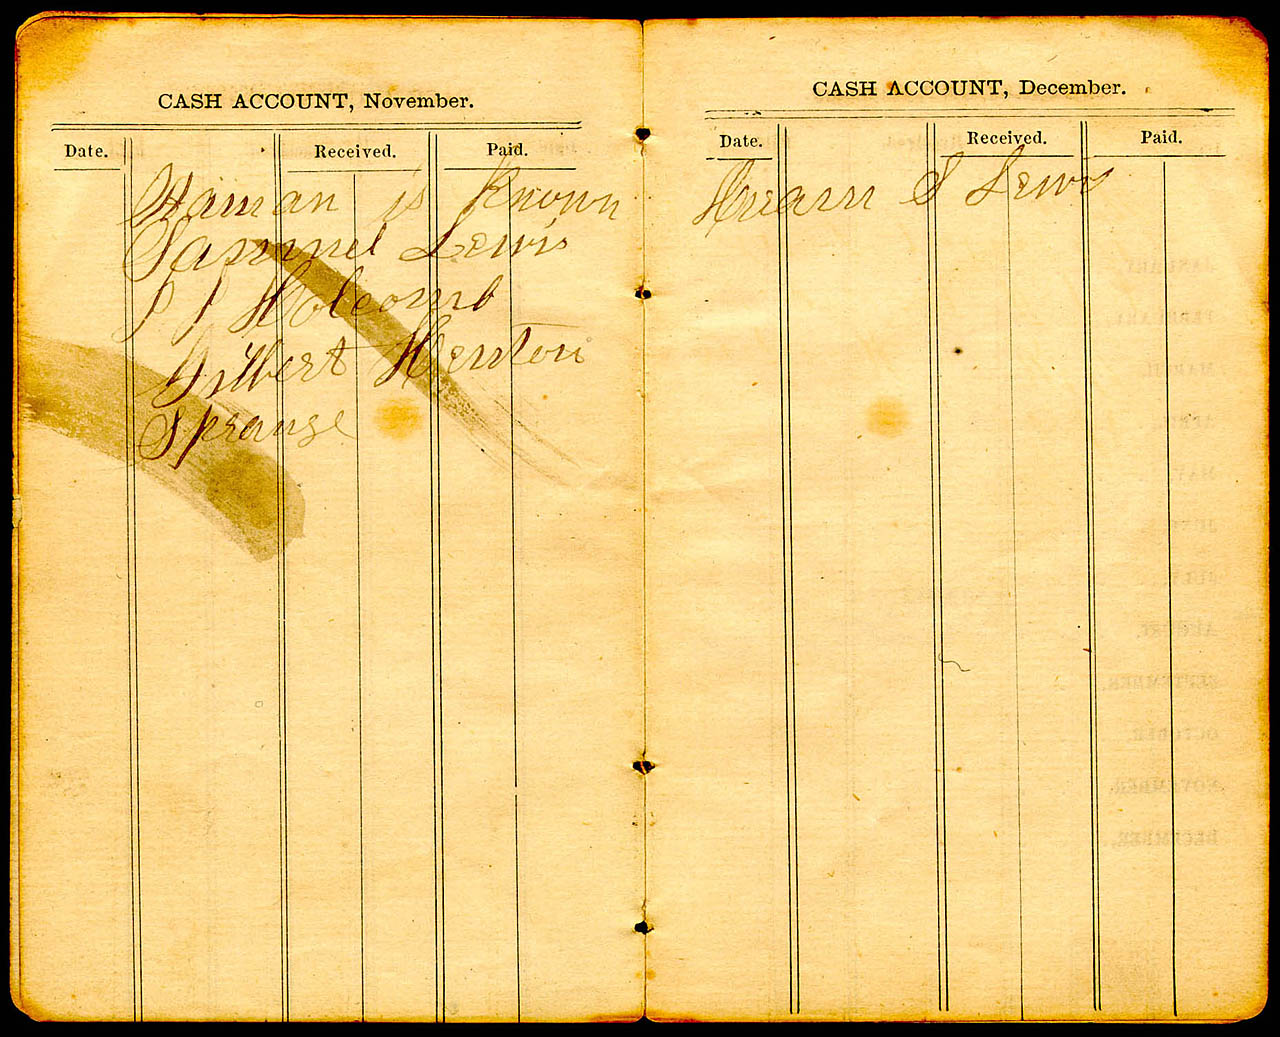 CASH ACCOUNT, November.
Date. Received. Paid.
Haman is Known
Samuel Lewis
S S Holcomb
Gilbert Henton
Sprange
CASH ACCOUNT, December.
Date. Received. Paid.
Hiram S Lewis